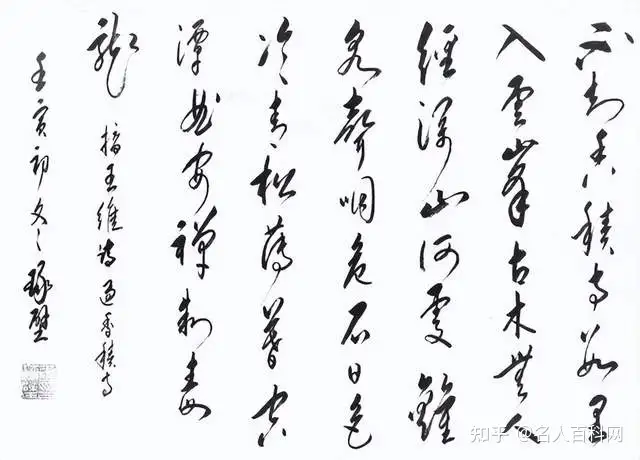 不知香積寺數里
入雲峰古木無人
經深山何處鐘
泉聲咽危石日色
冷青松薄暮空
潭曲安禪制毒
龍 摘王維詩過香積寺
壬寅初
知乎 @名人百科网